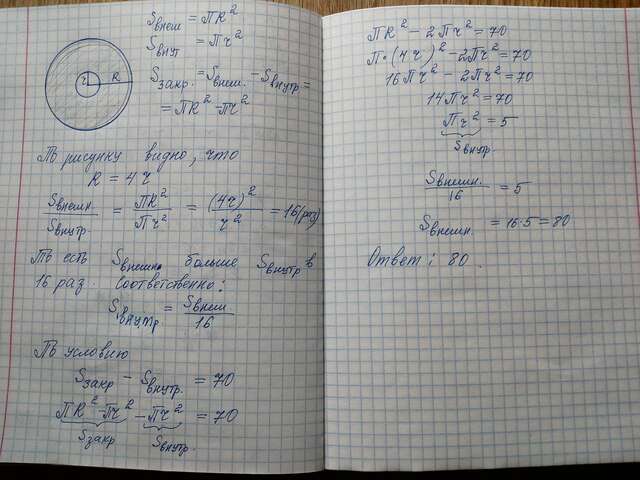 Sвнеш = ПR²
Sвнут = Пч²
Sзакр. = Sвнеш. - Sвнутр =
= ПR² - Пч²
ч R
По рисунку видно, что
R = 4ч
Sвнешн / Sвнутр = ПR² / Пч² = (4ч)² / ч² = 16 (раз)
То есть Sвнешн больше Sвнутр в
16 раз. Соответственно:
Sвнутр = Sвнеш / 16
По условию
Sзакр - Sвнутр. = 70
ПR² - Пч² - Пч² = 70
Sзакр Sвнутр.
ПR² - 2Пч² = 70
П·(4ч)² - 2Пч² = 70
16Пч² - 2Пч² = 70
14Пч² = 70
Пч² = 5
Sвнутр.
Sвнешн. / 16 = 5
Sвнешн. = 16·5 = 80
Ответ: 80.